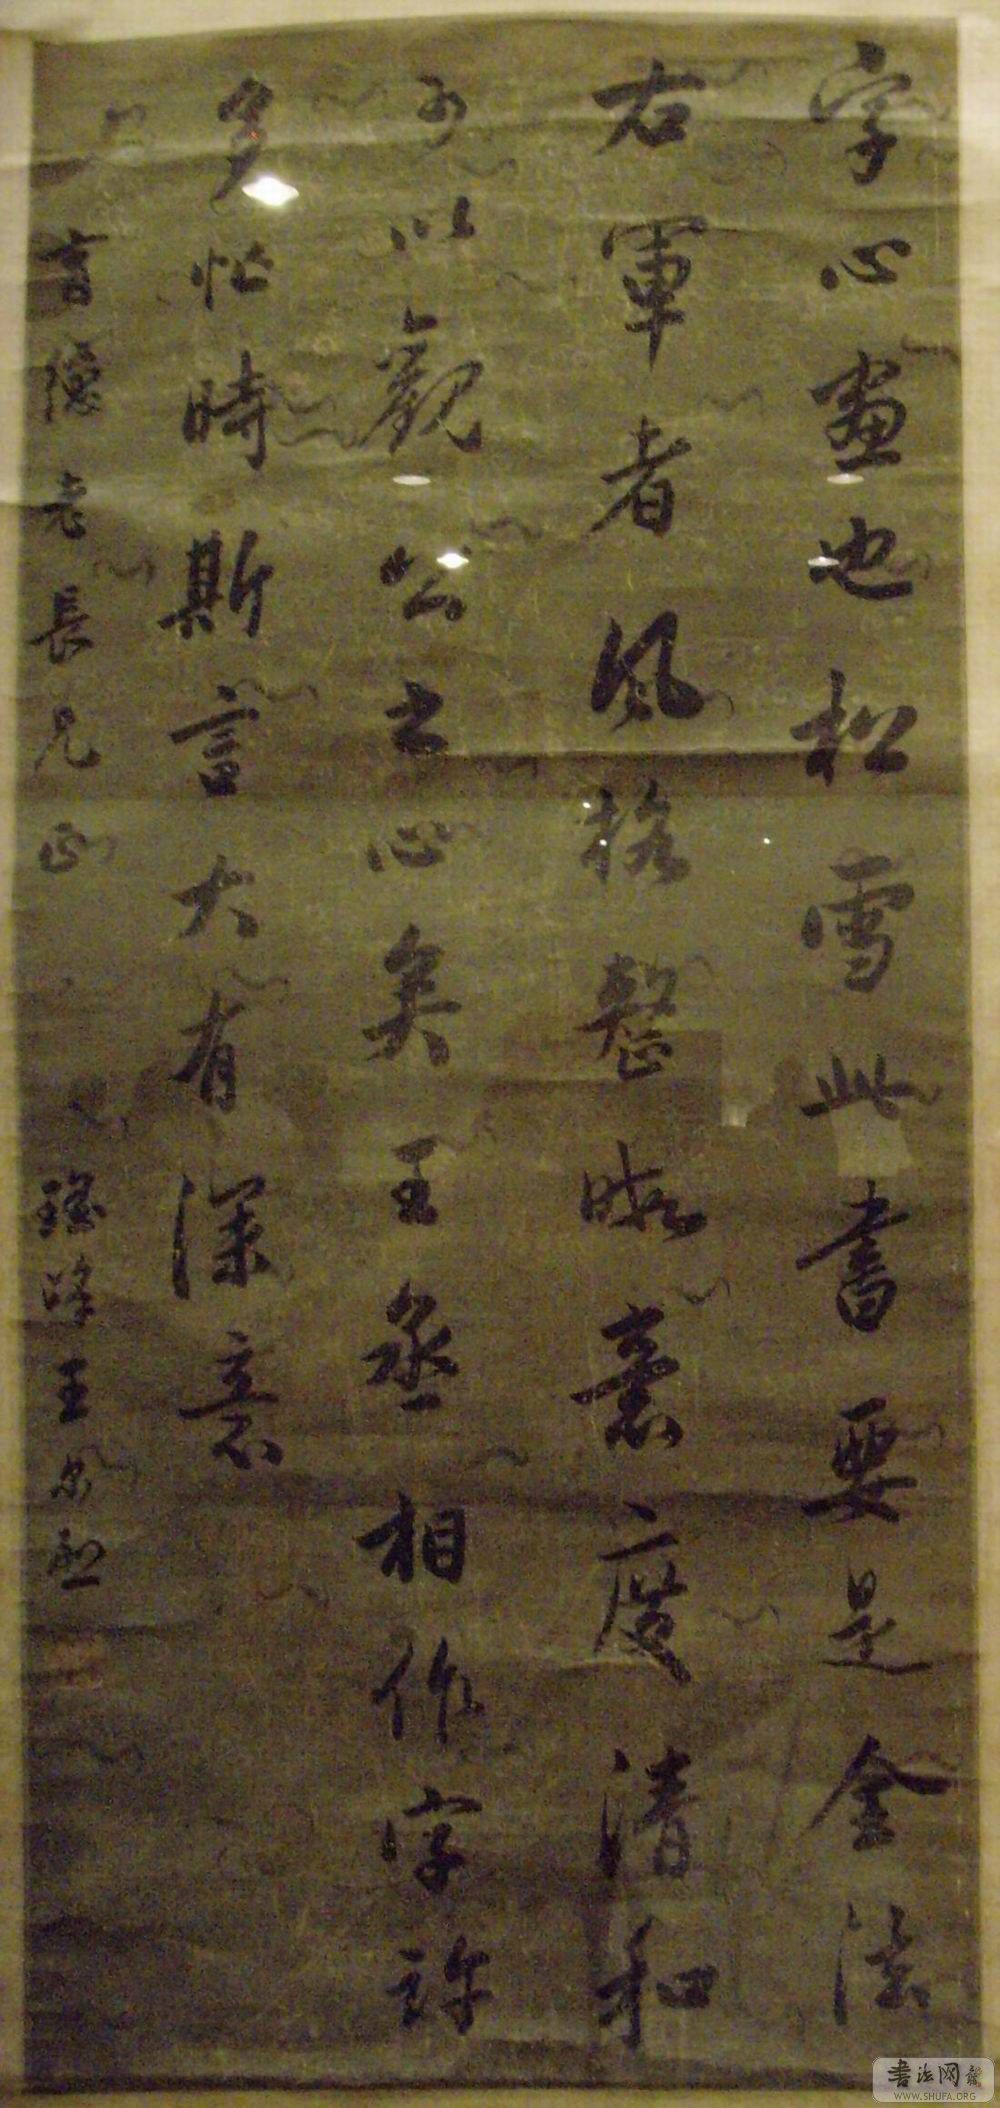 字心画也松雪此書要是全法
右軍者風格整暇意度清和
可以觀公之心矣王丞相作字訝
多忙時斯言大有深意
書隱老長兄正
瑤峰王爾烈
書法网
WWW.SHUFA.ORG